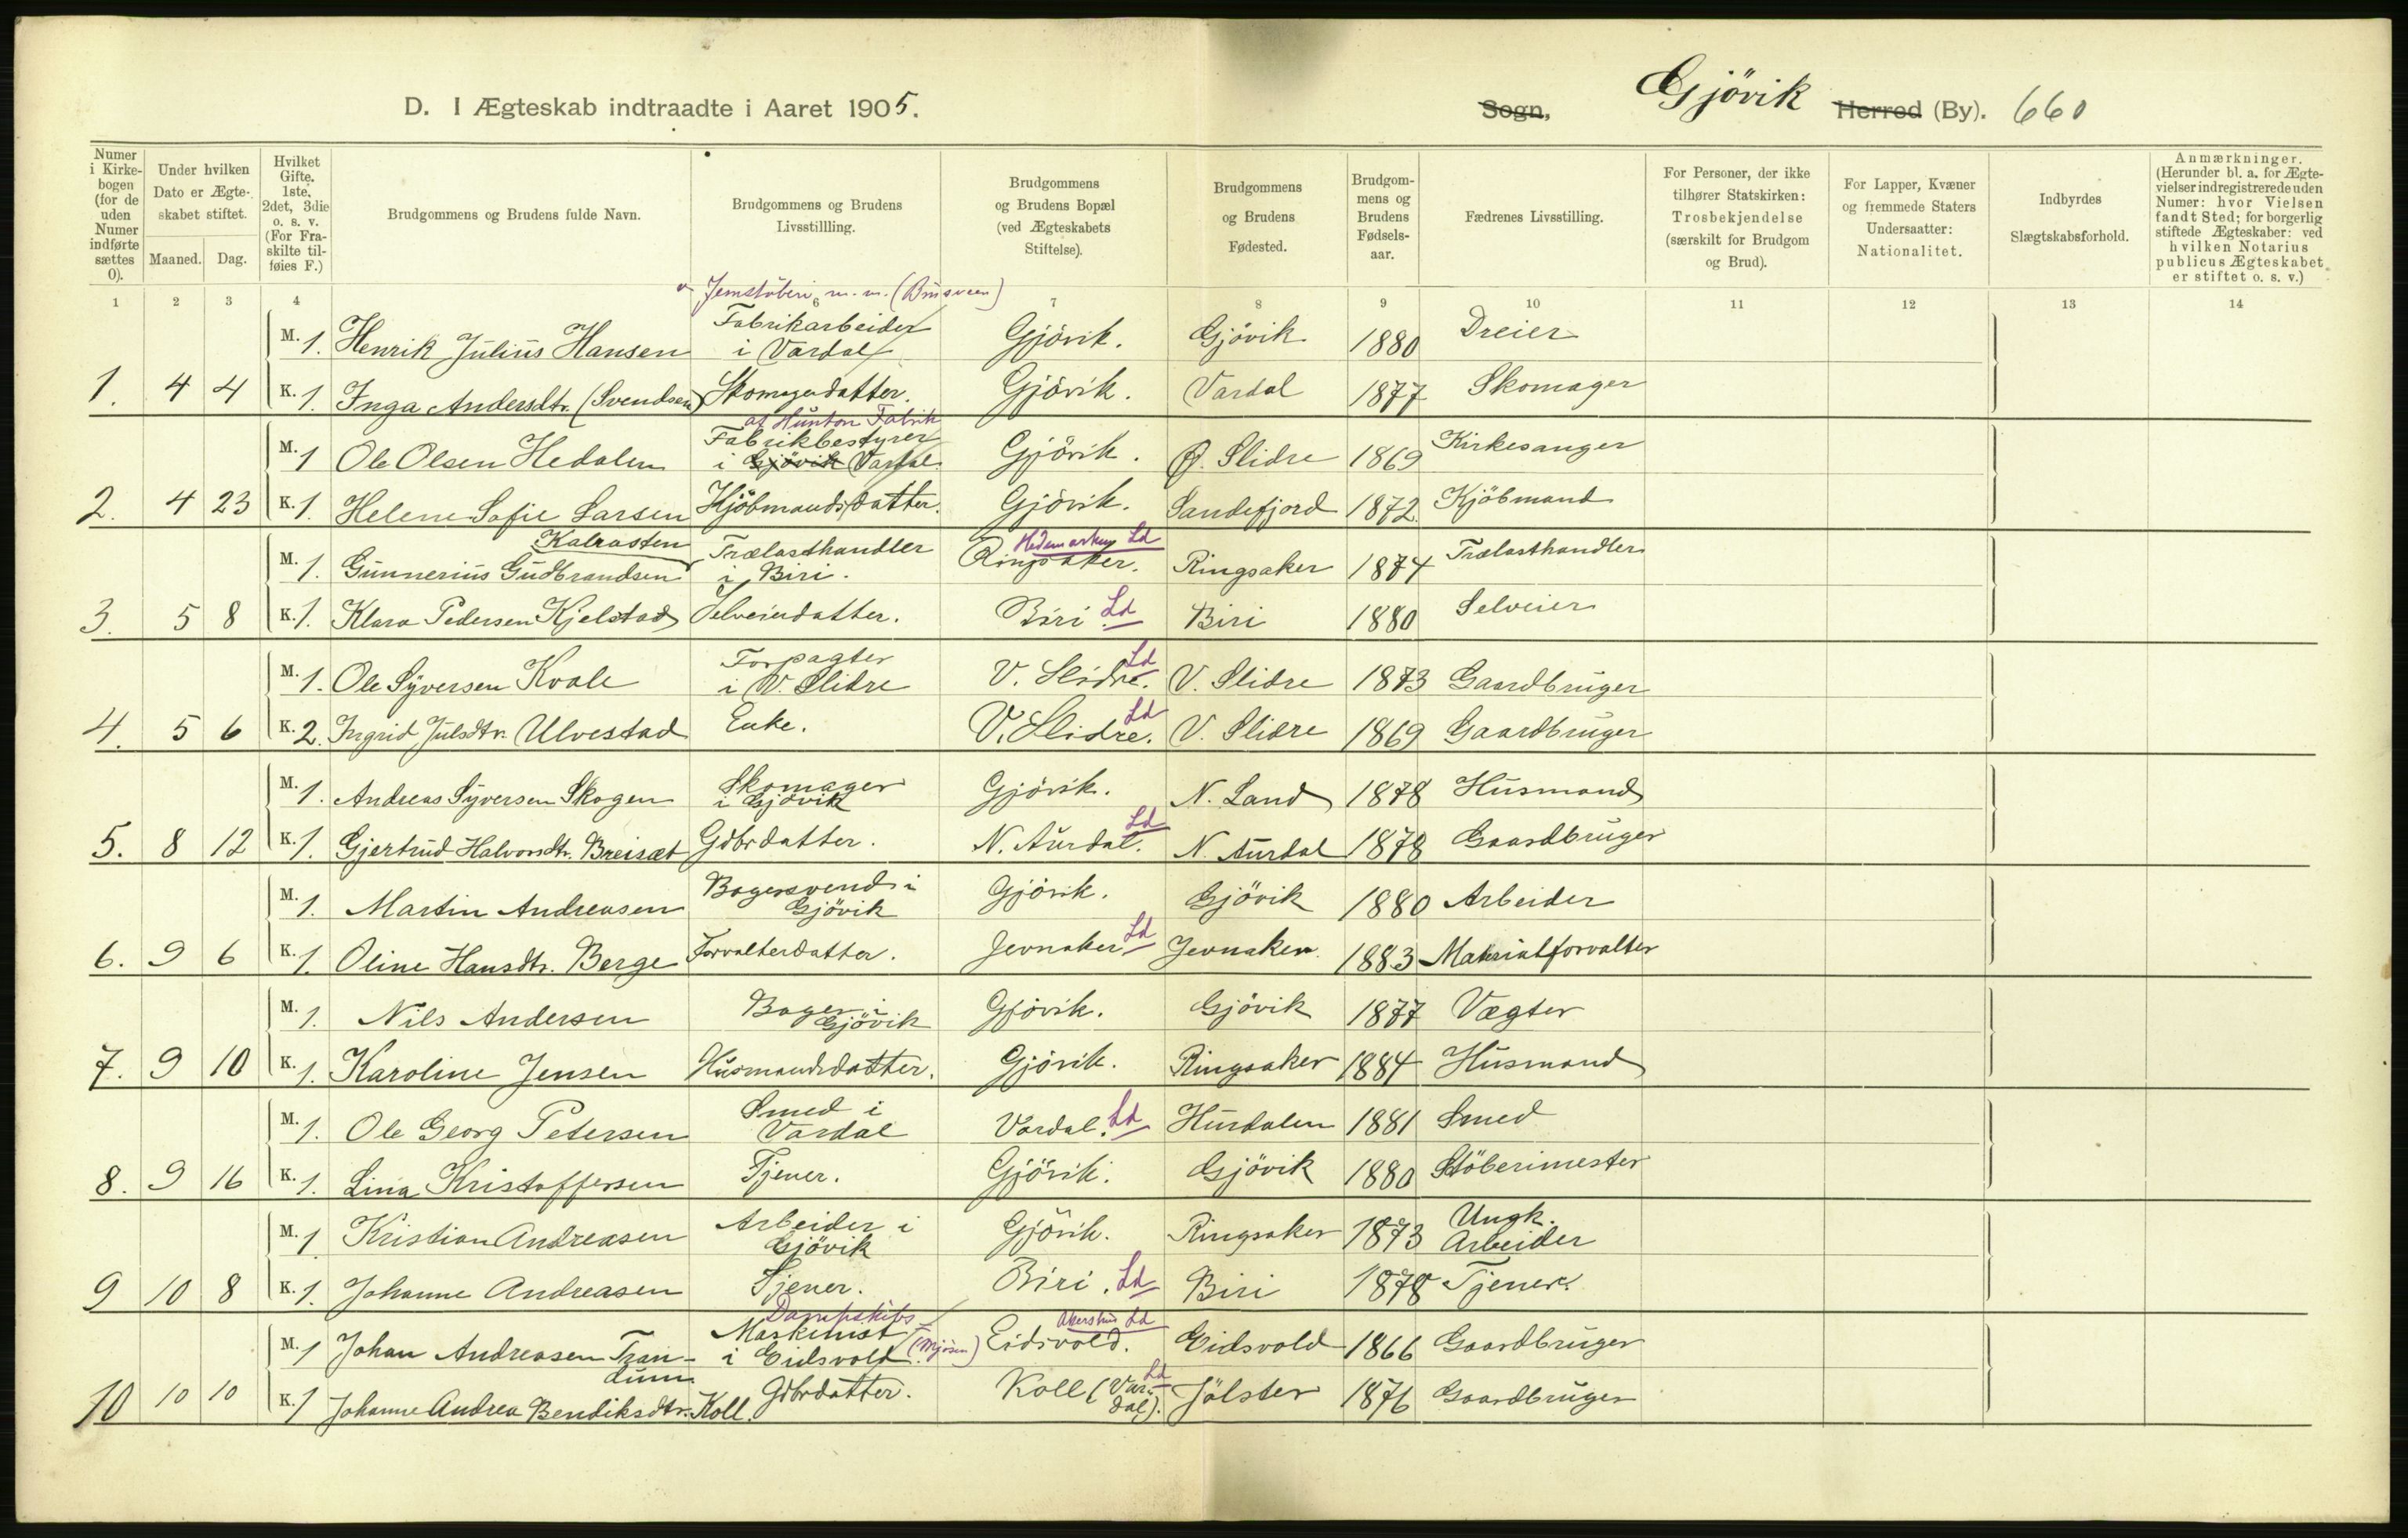 D. I Ægteskab indtraadte i Aaret 1905.
Sogn, Gjövik Herred (By). 660
Numer i Kirkebogen (for de uden Numer indførte sættes 0).
Under hvilken Dato er Ægteskabet stiftet.
Maaned. Dag.
Hvilket Gifte. 1ste, 2det, 3die o. s. v. (For Fraskilte tilføies F.)
Brudgommens og Brudens fulde Navn.
Brudgommens og Brudens Livsstillling.
Brudgommens og Brudens Bopæl (ved Ægteskabets Stiftelse).
Brudgommens og Brudens Fødested.
Brudgommens og Brudens Fødselsaar.
Fædrenes Livsstilling.
For Personer, der ikke tilhører Statskirken: Trosbekjendelse (særskilt for Brudgom og Brud).
For Lapper, Kvæner og fremmede Staters Undersaatter: Nationalitet.
Indbyrdes Slægtskabsforhold.
Anmærkninger. (Herunder bl. a. for Ægtevielser indregistrerede uden Numer: hvor Vielsen fandt Sted; for borgerlig stiftede Ægteskaber: ved hvilken Notarius publicus Ægteskabet er stiftet o. s. v.)
1 2 3 4 6 7 8 9 10 11 12 13 14
Jernstöberi m. m. (Brusveen)
M. 1. Henrik Julius Hansen Fabrikarbeider i Vardal Gjövik. Gjövik 1880 Dreier
1. 4 4 K. 1. Inga Andersdtr. (Svendsen) Skomagerdatter. Gjövik. Vardal 1877 Skomager
af Hunton Fabrik
M. 1 Ole Olsen Hedalen Fabrikbestyrer i Gjövik Vardal. Gjövik. Ø. Slidre 1869 Kirkesanger
2. 4 23 K. 1. Helene Sofie Larsen Kjöbmandsdatter. Gjövik. Sandefjord 1872 Kjöbmand
Kalrasten Hedemarken Ld
M. 1. Gunnerius Gudbrandsen Trælasthandler i Biri. Ringsaker. Ringsaker 1874 Trælasthandler
3. 5 8 K. 1. Klara Pedersen Kjelstad Selveierdatter. Biri Ld Biri 1880 Selveier
M. 1. Ole Syversen Kvale Forpagter i V. Slidre V. Slidre. Ld V. Slidre 1873 Gaardbruger
4. 5 6 K. 2. Ingrid Julsdtr. Ulvestad Enke. V. Slidre. Ld V. Slidre 1869 Gaardbruger
M. 1. Andreas Syversen Skogen Skomager i Gjövik Gjövik. N. Land 1878 Husmand
5. 8 12 K. 1. Gjertrud Halvorsdtr. Breisæt Gdbrdatter. N. Aurdal. Ld N. Aurdal 1878 Gaardbruger
M. 1. Martin Andreasen Bagersvend i Gjövik Gjövik. Gjövik 1880 Arbeider
6. 9 6 K. 1. Oline Hansdtr. Berge Forvalterdatter. Jevnaker Ld Jevnaker. 1883 Materialforvalter
M. 1. Nils Andersen Bager i Gjövik Gjövik. Gjövik 1877 Vægter
7. 9 10 K. 1. Karoline Jensen Husmandsdatter. Gjövik. Ringsaker 1884 Husmand
M. 1. Ole Georg Petersen Smed i Vardal Vardal. Ld Hurdalen 1881 Smed
8. 9 16 K. 1. Lina Kristoffersen Tjener. Gjövik. Gjövik 1880 Stöberimester
M. 1 Kristian Andreasen Arbeider i Gjövik Gjövik. Ringsaker 1873 Ungk. Arbeider
9 10 8 K. 1. Johanne Andreasen Tjener. Biri. Ld Biri 1878 Tjener.
Dampskibs Akershus Ld
M. 1 Johan Andreasen Trandum Maskinist i Eidsvold. (Mjøsen) Eidsvold. Eidsvold 1866 Gaardbruger
10 10 10 K. 1 Johanne Andrea Bendiksdtr. Koll Gdbrdatter. Koll (Vardal). Ld Jölster 1876 Gaardbruger